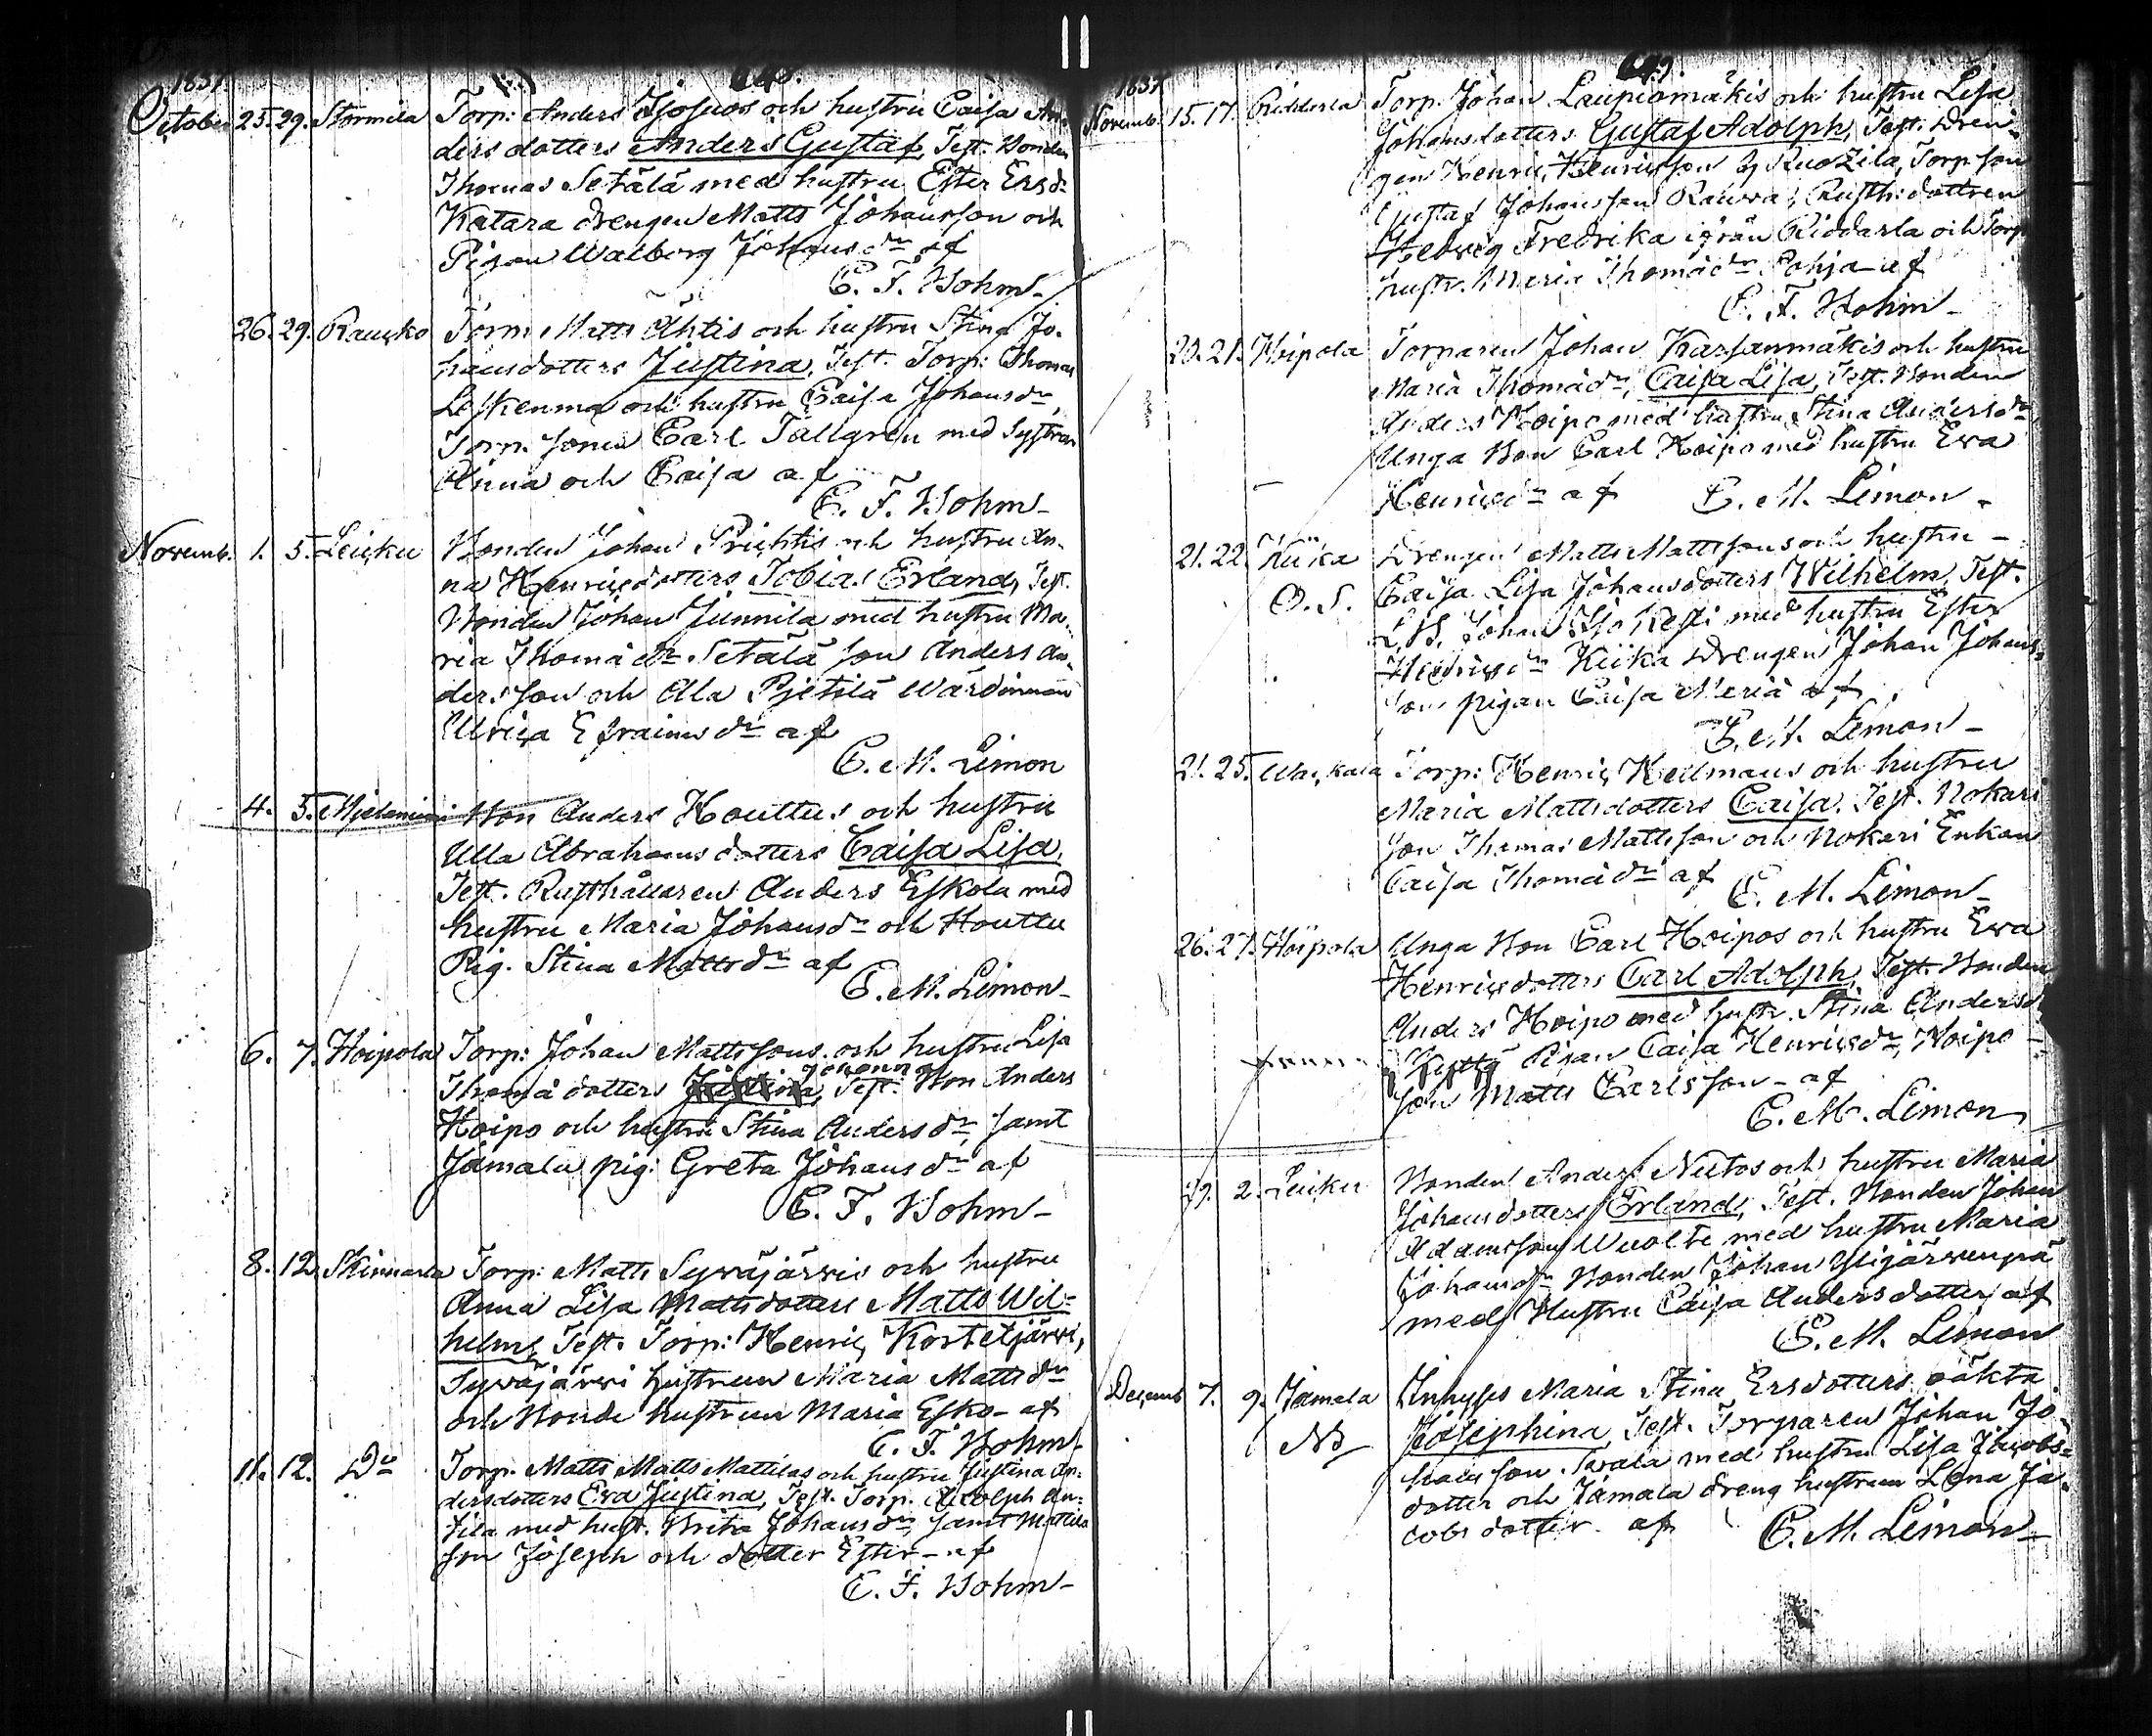 1837.
October 25. 29. Stormila Torp: Anders Isosuos och hustru Caisa An-
ders dotters Anders Gustaf, Test. Bonden
Thomas Setälä med hustru Ester Ersdr
Katara drengen Matts Johansson och
Pigan Walborg Johansdr af
C. F. Bohm-
26. 29. Raucko Torp: Matts Ahtis och hustru Stina Jo-
hansdotters Justina, Test. Torp: Thomas
och hustru Caisa Johansdr,
Torp. sonen Carl Tallgren med Systrar
Anna och Caisa af
C. F. Bohm-
Novemb. 1. 5. Leicku Bonden Johan Prichtis och hustru An-
na Henricsdotters Tobias Erland, Test.
Bonden Johan Junnila med hustru Ma-
ria Thomædr Setälä son Anders An-
ders son och Ulla Pjetilä Wärdinnan
Ulrica Efraimsdr af
C. M. Limon
4. 5. Bon Anders Houttus och hustru
Ulla Abrahams dotters Caisa Lisa,
Test. Rusthållaren Anders Eskola med
hustru Maria Johansdr och Houttu
Pig. Stina Mattsdr af
C. M. Limon-
6. 7. Hoipola Torp: Johan Mattssons och hustru Lisa
Johanna
Thomædotters Justina, Test. Bon Anders
Hoipo och hustru Stina Andersdr, samt
Jamala pig: Greta Johansdr af
C. F. Bohm-
8. 12. Skinnarla Torp: Matts Sywäjärwis och hustru
Anna Lisa Mattsdotters Matts Wil-
helm, Test. Torp: Henric Kortetjärwi,
Sywäjärwi hustrun Maria Mattsdr
och Bonde hustrun Maria Esko- af
C. F. Bohm-
11. 12. Do Torp. Matts Matts Mattilas och hustru Justina An-
dersdotters Eva Justina, Test. Torp. Adolph An-
tila med hust. Brita Johansdr, samt Mattila
son Joseph och dotter Ester- af
C. F. Bohm-
1837
649.
Novemb. 15. 17. Ridderla Torp. Johan Laupiomäkis och hustru Lisa
Johansdotters Gustaf Adolph, Test. Dren-
gen Henric Henricsson Torp son
Gustaf Johansson Rusth: dottren
Hedwig Fredrika ifrån Riddarla och Torp
hustr. Maria Thomædr Pohja af
C. F. Bohm-
20. 21. Hoipola Torparen Johan Karhanmäkis och hustru
Maria Thomædr, Caisa Lisa, Test. Bonden
Anders Hoipo med hustru Stina Andersdr,
Unga Bon Carl Hoipo med hustru Ewa
Henricsdr af C. M. Limon-
21. 22. Kiika Drengen Matts Mattssons och hustru -
O. S. Caisa Lisa Johansdotters Wilhelm, Test.
Johan med hustru Ester
Henricsdr Kiika Drengen Johan Johans-
son pigan Caisa Maria af
C. M. Limon-
21. 25. Torp: Henric Hellmans och hustru
Maria Mattsdotters Caisa, Test. Nokari
son Thomas Mattsson och Nokari Enkan
Caisa Thomædr af C. M. Limon-
26. 27. Hoipola Unga Bon Carl Hoipos och hustru Ewa
Henricsdotters Carl Adolph, Test. Bonden
Anders Hoipo med hustr. Stina Andersdr
Pigan Caisa Henricsdr, Hoipo -
son Matts Carlsson- af
C. M. Limon
29. 2. Leicku Bonden Anders Nutos och hustru Maria
Johansdotters Erland, Test. Bonden Johan
Adamsson med hustru Maria
Johansdr Bonden Johan Ylijärwenpä
med Hustru Caisa Andersdotter af
C. M. Limon
Decemb 7. 9. Jamala Inhyses Maria Stina Ersdotters oäkta
Josephina, Test. Torparen Johan Jo-
hansson med hustru Lisa Jacobs-
dotter och Jamala dreng hustrun Lena Ja-
cobs dotter af C. M. Limon-